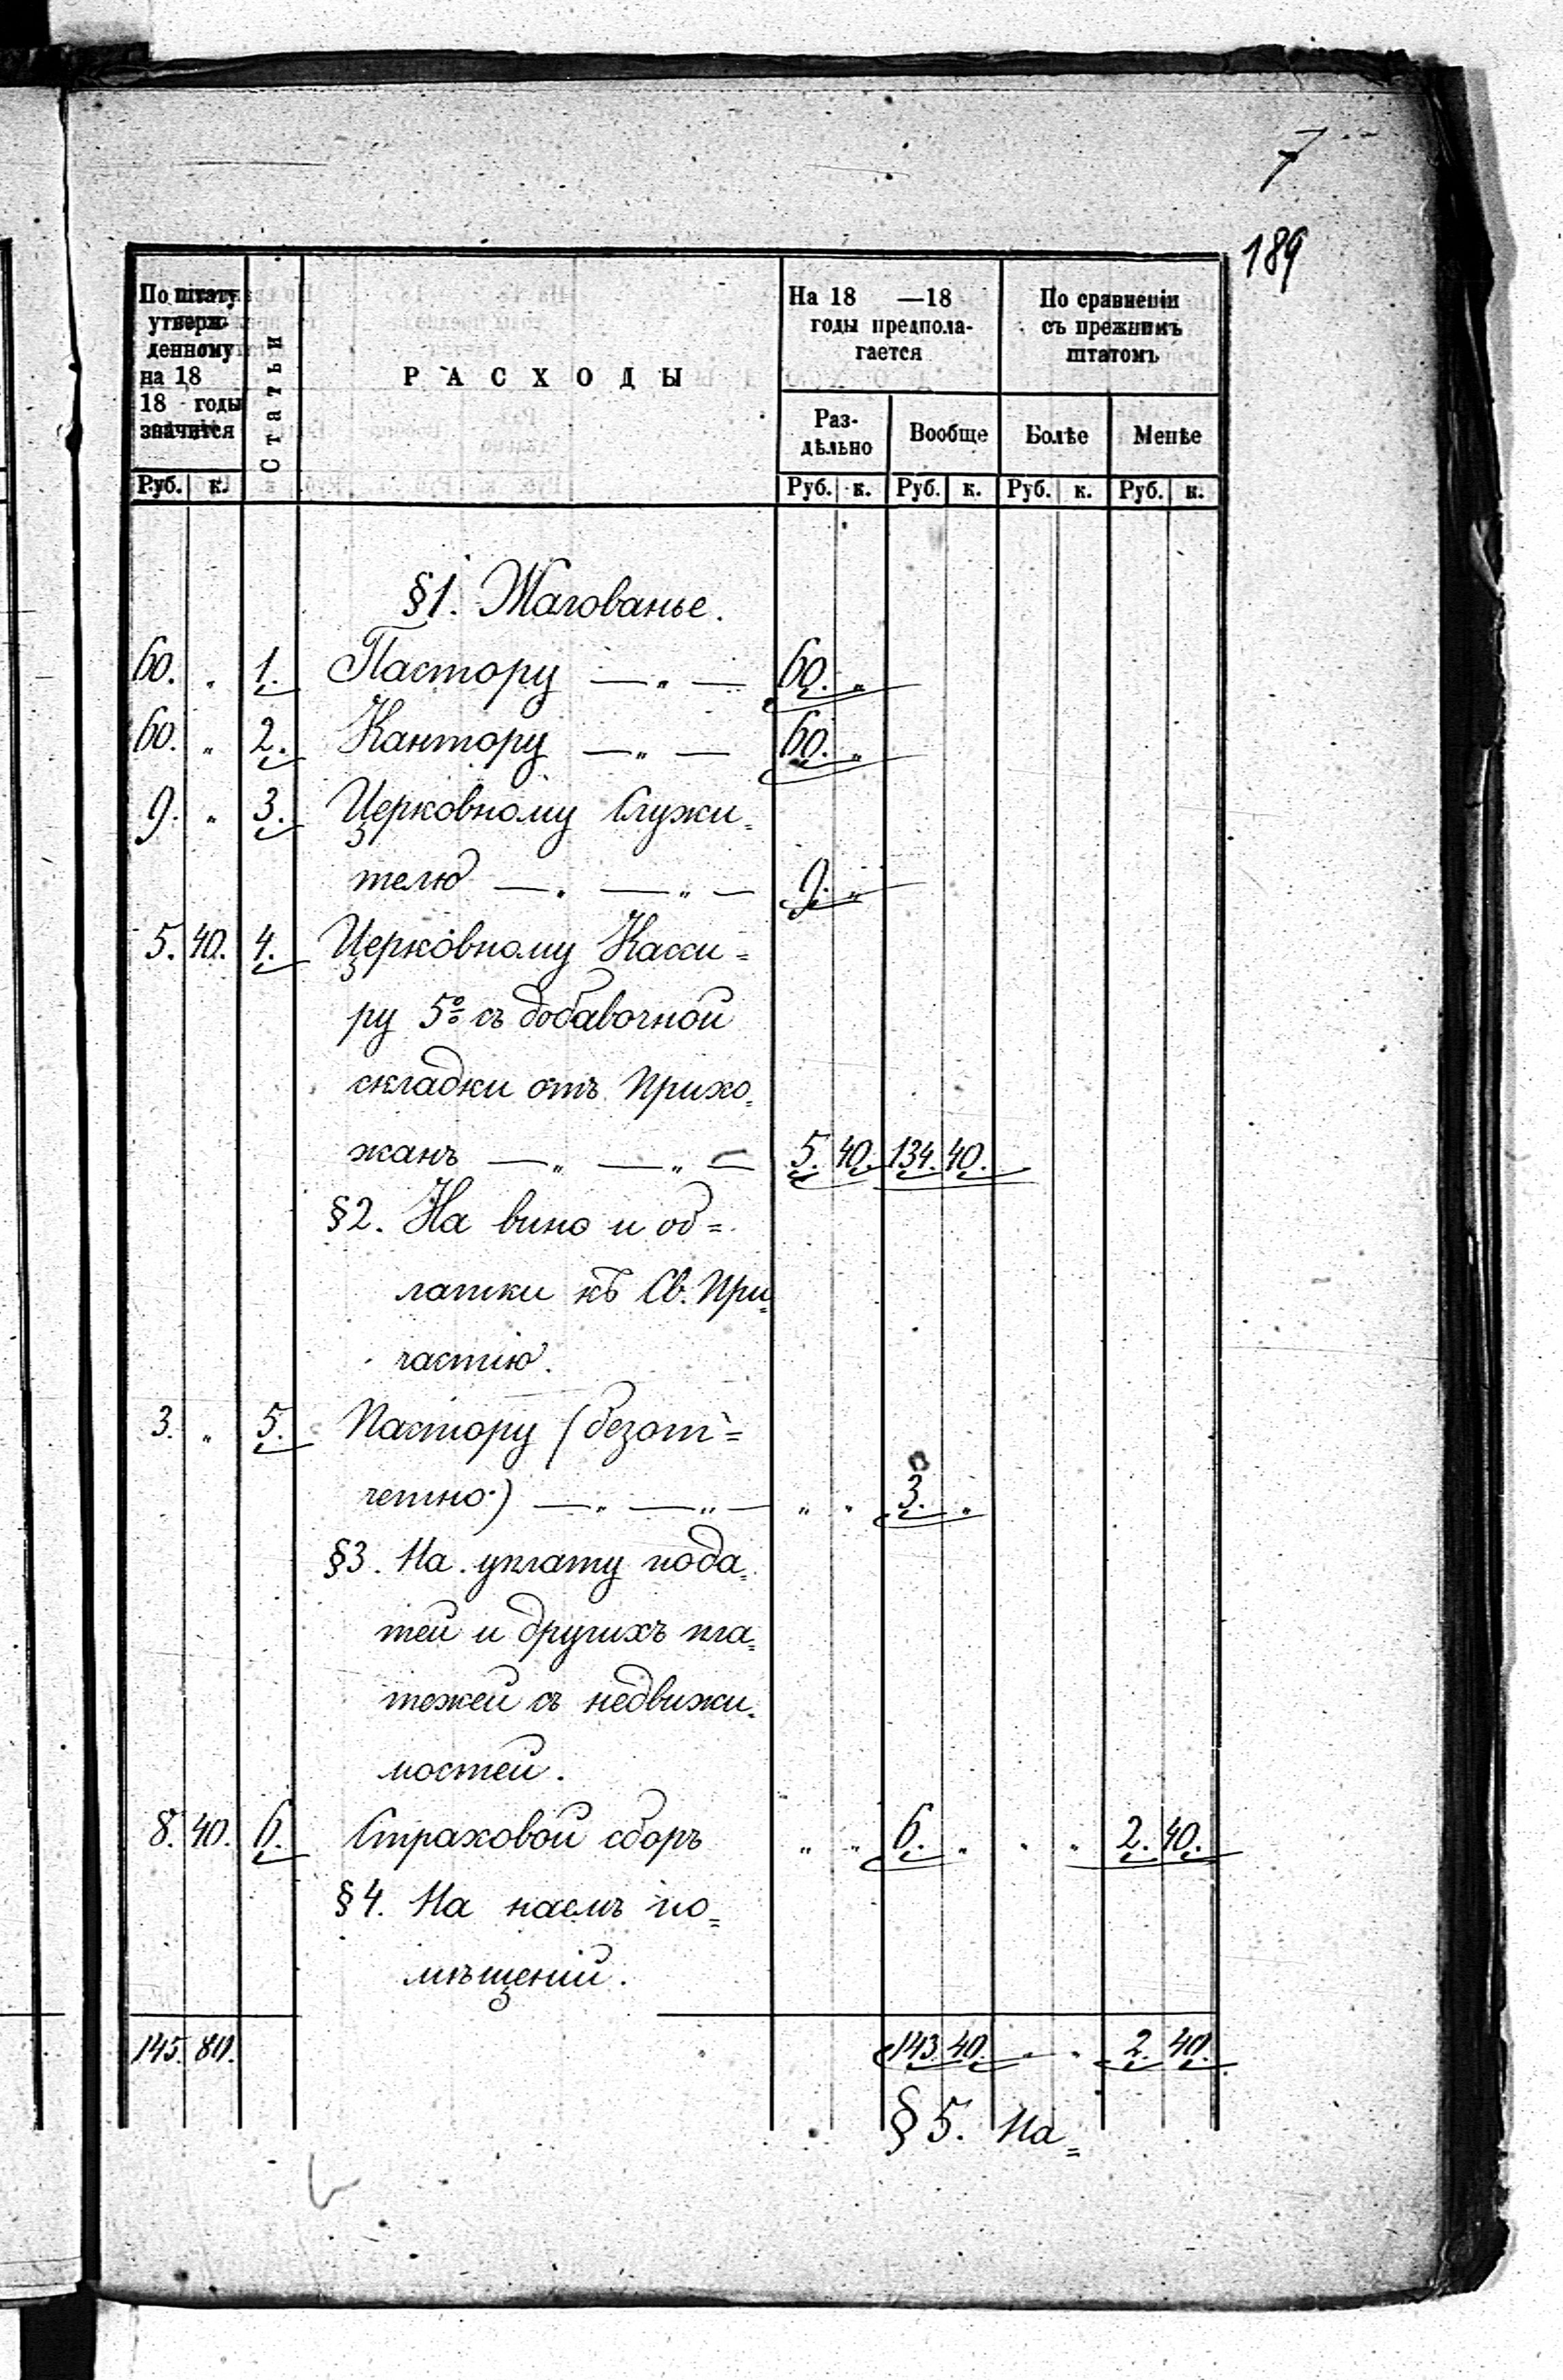 7
189
По штату
утверж-
денному
на 18
18 годы
значится
Статьи
РАСХОДЫ
На 18 —18
годы предпола-
гается
По сравненіи
съ прежнимъ
штатомъ
Раз-
дѣльно
Вообще
Болѣе
Менѣе
Руб. к. Руб. к. Руб. к. Руб. к. Руб. к.
§1. Жалованье.
60. „ 1. Пастору —„— 60. „
60. „ 2. Кантору —„— 60. „
9. „ 3. Церковному Служи=
телю —„—„— 9. „
5. 40. 4. Церковному Касси=
ру 5% съ добавочной
складки отъ прихо=
жанъ —„—„— 5. 40. 134. 40.
§2. На вино и об=
латки къ Св. При=
частію.
3. „ 5. Пастору (безот=
четно) —„—„— „ „ 3. „
§3. На уплату пода=
тей и другихъ пла=
тежей съ недвижи=
мостей.
8. 40. 6. Страховой сборъ „ „ 6. „ „ „ 2. 40.
§4. На наемъ по=
мѣщеній.
145. 80. 143. 40. „ „ 2. 40.
§5. На=